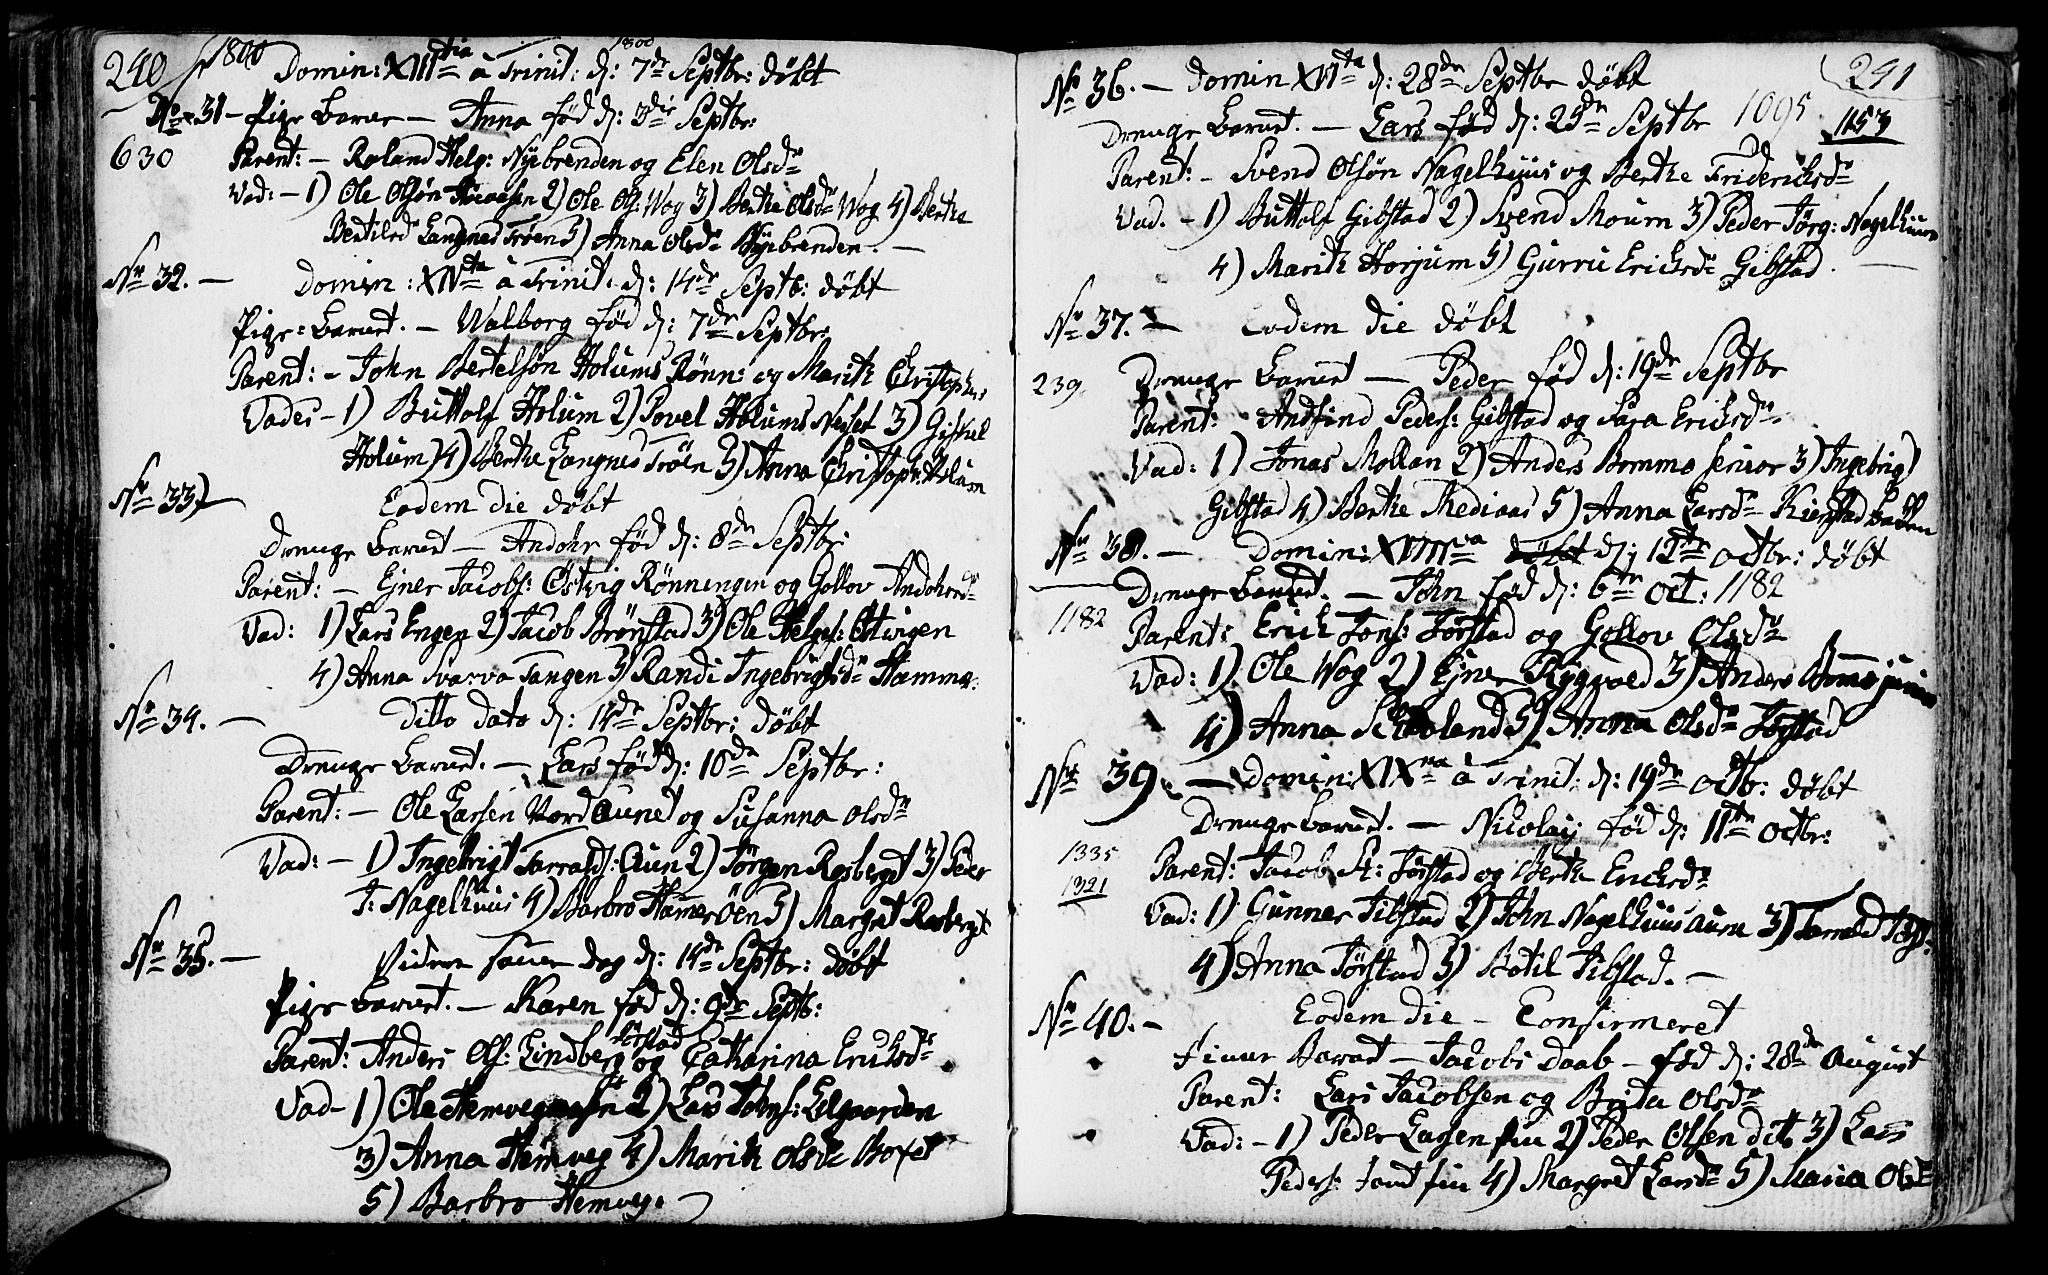 240 1800 Domin: XIII tia à Trinit: d: 7de Septbr: døbt
No 31 – Pige Barnet – Anna fød d: 3die Septbr:
630 Parent: – Roland Helg: Nyebrenden og Elen Olsdr
Vad: – 1) Ole Olsøn 2) Ole Ols: Wog 3) Berthe Olsdr Wog 4) Berthe
Bertilsdr Langnes Troen 5) Anna Olsdr Nyebrenden. –
No 32. – Domin: XIV ta à Trinit: d: 14de Septb: døbt
Pige-Barnet. – Walborg fød d: 7de Septbr:
Parent: – John Bertelsøn Holums Rønn: og Marith Christophs:
Vades – 1) Buttolf Holum 2) Povel Holums Nesset 3) Giskel
Holum 4) Berthe Langnes Troen 5) Anna Christoph: Holum
No 33) – Eodem die døbt
Drenge Barnet – Andohr fød d: 8de Septbr:
Parent: – Ejner Jacobs: Østvig Rønningen og Gollov Andohrsdr
Vad: 1) Lars Engen 2) Jacob Brønstad 3) Ole Helges: Østvigen
4) Anna Svarva Tangen 5) Randi Ingebrigtsdr Hamma:
No 34. – Ditto dato d: 14de Septbr: døbt
Drenge Barnet. – Lars fød d: 10de Septbr:
Parent: – Ole Larsen Nordaunet og Susanna Olsdr
Vad: – 1) Ingebrigt Tarralds: Aun 2) Jørgen Rosberget 3) Peder
J: Nagelhuus 4) Barbro Hamer Øen 5) Margret Rosberget
No 35. – Viden samme Dag d: 14de Septbr: døbt
Pige Barnet. – Karen fød d: 9de Septb:
Tørstad
Parent: Anders Ols: Lindberg og Catharina Eriksdr
Vad – 1) Ole 2) Lars Johns: Elgaarden
3) Anna Hemveg 4) Marith Olsdr Moxet
5) Barbro Hemveg.
241
No 36. – Domin XVI ta d: 28de Septbr døbt
Drenge Barnet. – Lars fød d: 25de Septbr 1095 1153
Parent: – Svend Olsøn Nagelhuus og Berthe Friderichsdr
Vad. – 1) Buttolf Gibstad 2) Svend Moum 3) Peder Jørg: Nagelhuus
4) Marith Horjum 5) Gurru Erichsdr Gibstad. –
No 37. – Eodem die døbt
239. Drenge Barnet – Peder fød d: 19de Septbr
Parent: Andfind Peders: Gibstad og Sara Erichsdr
Vad: 1) Jonas Mollan 2) Anders Bomma senior 3) Ingebrigt
Gibstad 4) Berthe Mediaas 5) Anna Larsdr Kirstad Bakken
No 38. – Domin: XVIII va døbt d: 12te Octbr: døbt
Drenge Barnet. – John fød d: 6te Oct: 1182
1182 Parent: Erich Jons: Tørstad og Gollov Olsdr
Vad: 1) Ole Wog 2) Ejner Rygvold 3) Anders Bomo junior
4) Anna 5) Anna Olsdr Tørstad
No 39. – Domin: XIX na à Trinit: d: 19de Octb: døbt
Drenge Barnet. – Nicolaij fød d: 11te Octbr:
1335 Parent: Jacob Tørstad og Berthe Erichsdr
1321 Vad: 1) Gunner Tibstad 2) John Nagelhuus aune 3) Torrald Tørst:
4) Anna Tørstad 5) Botil Tibstad. –
No 40. – Eodem die – Confirmeret
Finne Barnet – Jacobs Daab – fød d: 28de August
Parent: Lars Jacobsen og Brita Olsdr
Vad: – 1) Peder Larsen fin 2) Peder Olsen dito 3) Lars
Peders: Jomt fin 4) Margret Larsdr 5) Maria Olsdr